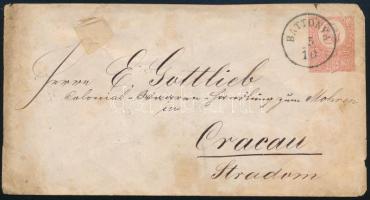 BATTONYA
5
10
Herrn E. Gottlieb
Colonial-Waaren-Handlung zum Mohren
in
Cracau
Stradom